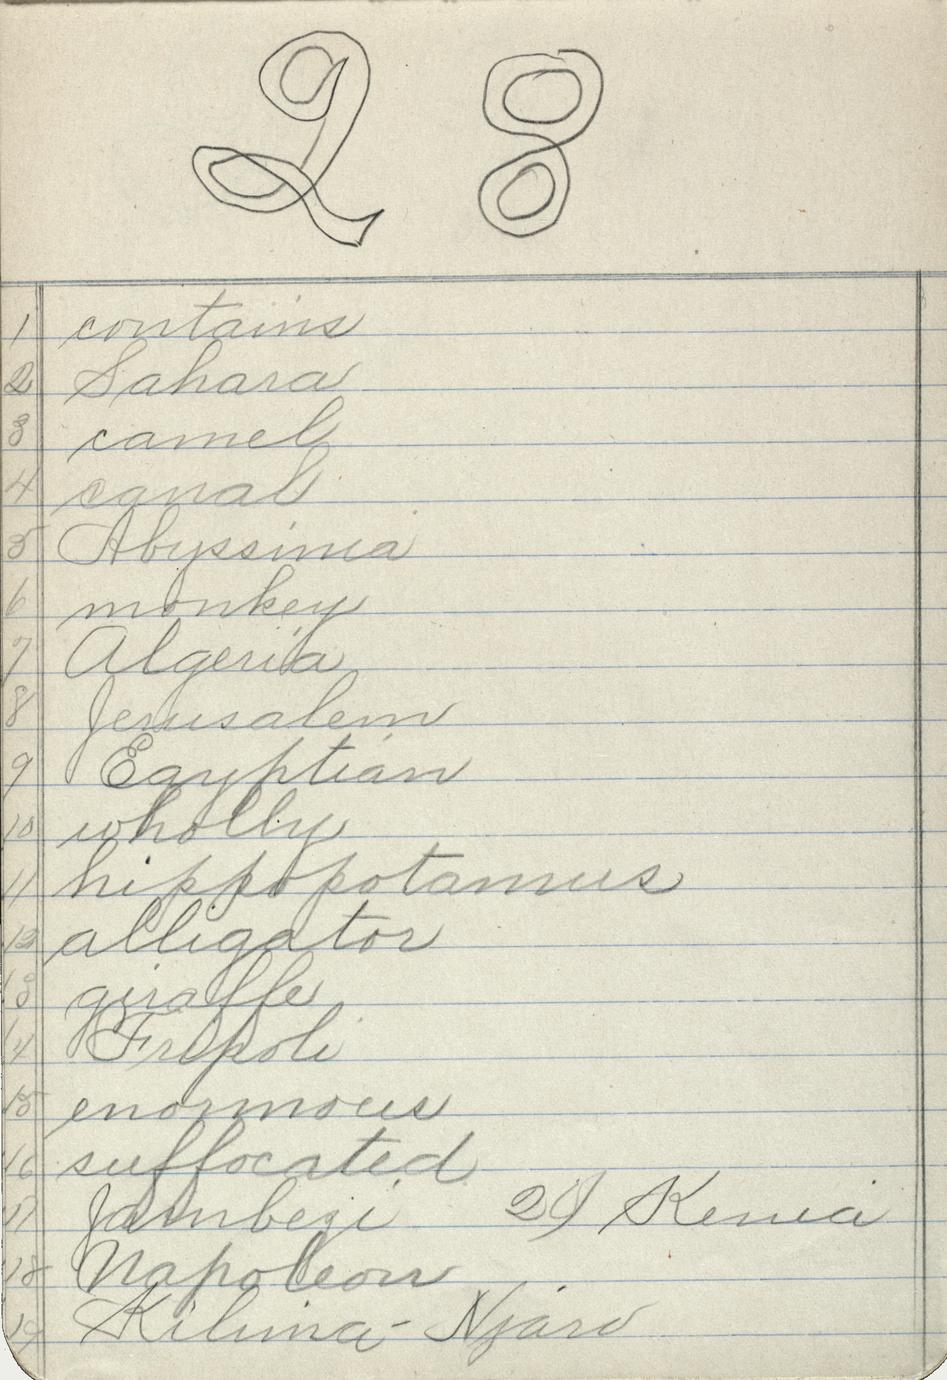 28
1 contains
2 Sahara
3 camel
4 canal
5 Abyssinia
6 monkey
7 Algeria
8 Jerusalem
9 Egyptian
10 wholly
11 hippopotamus
12 alligator
13 giraffe
14 Tripoli
15 enormous
16 suffocated
17 Zambezi 20 Kenia
18 Napoleon
19 Kilima-Njaro